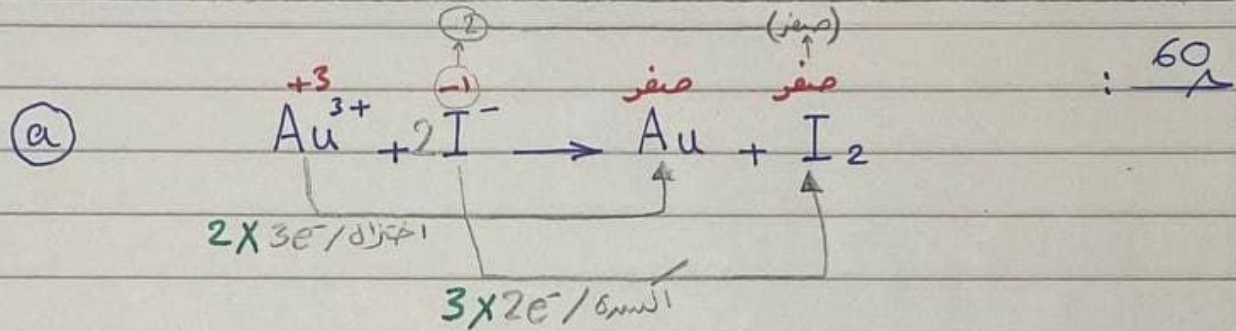 60 س :
-2 (صفر)
+3 -1 صفر صفر
a Au³⁺ + 2I⁻ → Au + I₂
2 X 3e⁻ / اختزال
3 X 2e⁻ / أكسدة